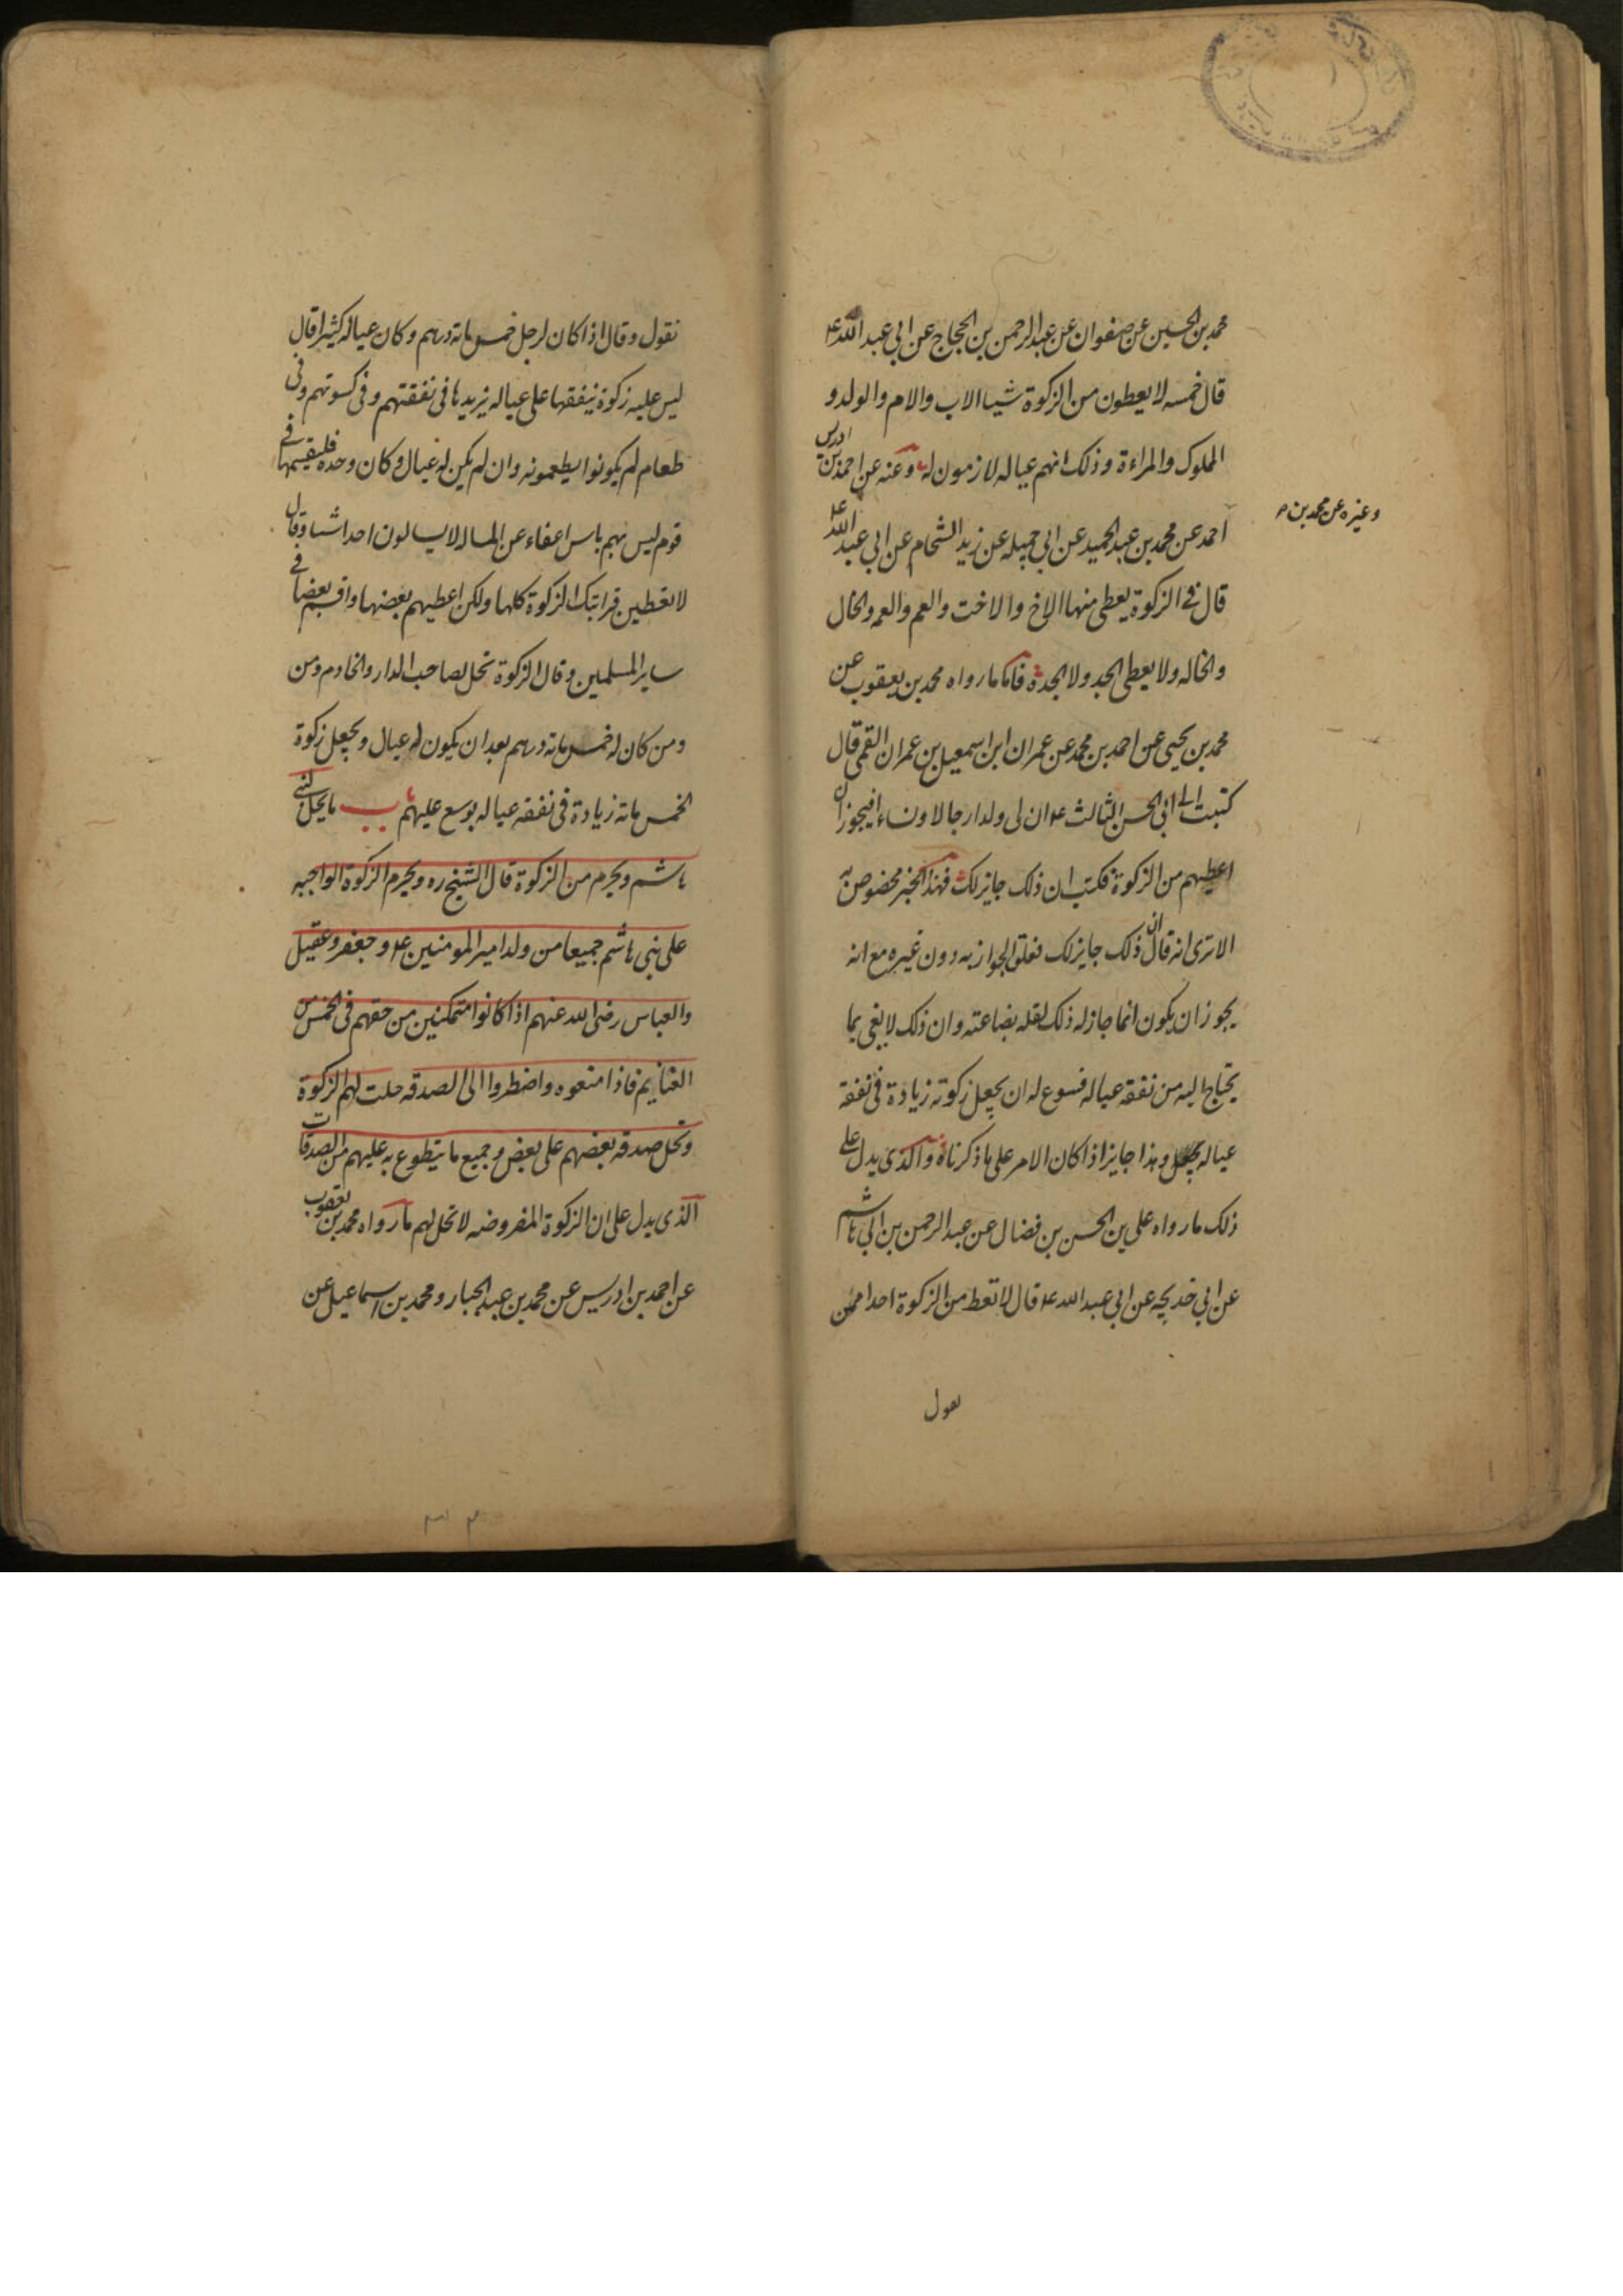 محمد بن الحسين عن صفوان عن عبد الرحمن بن الحجاج عن ابي عبد الله ع
قال خمسه لا يعطون من الزكوة شيئا الاب والام والولد و
المملوك والمراءة وذلك انهم عياله لازمون له وعنه عن احمد بن ادريس
وغيره عن محمد بن
احمد عن محمد بن عبد الحميد عن ابي جميله عن زيد الشحام عن ابي عبد الله ع
قال في الزكوة يعطى منها الاخ والاخت والعم والعمه والخال
والخاله ولا يعطى الجد ولا الجدة فاما ما رواه محمد بن يعقوب عن
محمد بن يحيى عن احمد بن محمد عن عمران ابن اسمعيل بن عمران القمى قال
كتبت الى ابي الحسن الثالث ع ان لى ولدا رجالا ونساء افيجوز ان
اعطيهم من الزكوة فكتب ان ذلك جايز لك فهذا الخبر مخصوص به
الا ترى انه قال ان ذلك جايز لك فعلق الجواز به دون غيره مع انه
يجوز ان يكون انما جاز له ذلك لقله بضاعته وان ذلك لا يفى بما
يحتاج اليه من نفقه عياله فسوع له ان يجعل زكوته زيادة فى نفقه
عياله وهذا جايز اذا كان الامر على ما ذكرناه والذى يدل على
ذلك ما رواه على بن الحسن بن فضال عن عبد الرحمن بن ابي هاشم
عن ابي خديجه عن ابي عبد الله ع قال لا تعط من الزكوة احدا ممن
يعول
نقول وقال اذا كان لرجل خمس مائة درهم وكان عياله كثيرا قال
ليس عليه زكوة ينفقها على عياله يزيدها فى نفقتهم وفى كسوتهم وفى
طعام لم يكونوا يطعمونه وان لم يكن له عيال وكان وحده فليقسمها في
قوم ليس بهم باس اعفاء عن المساله لا يسالون احدا شيئا وقال
لا تعطين قرابتك الزكوة كلها ولكن اعطيهم بعضها واقسم بعضا في
ساير المسلمين وقال الزكوة تحل لصاحب الدار والخادم ومن
ومن كان له خمس مائة درهم بعد ان يكون له عيال ويجعل زكوة
الخمس مائة زيادة فى نفقه عياله يوسع عليهم ب ما يحل لبنى
هاشم ويحرم من الزكوة قال الشيخ ره ويحرم الزكوة الواجبه
على بنى هاشم جميعا من ولد امير المومنين ع وجعفر وعقيل
والعباس رضى الله عنهم اذا كانوا متمكنين من حقهم فى الخمس من
الغنايم فاذا منعوه واضطروا الى الصدقه حلت لهم الزكوة
وتحل صدقه بعضهم على بعض وجميع ما يتطوع به عليهم من الصدقات
الذى يدل على ان الزكوة المفروضه لا تحل لهم ما رواه محمد بن يعقوب
عن احمد بن ادريس عن محمد بن عبد الجبار ومحمد بن اسماعيل عن